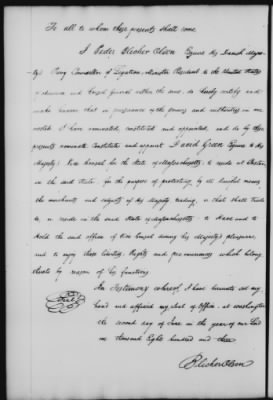 To all to whom these presents shall come
I Peder Blicher Olsen Esquire his Danish Majes-
ty's Privy Counsellor of Legation, Minister Resident to the United States
of America and Consul general within the same, do hereby certify and
make known that in pursuance of the powers and authorities in me
vested I have nominated, constituted and appointed, and do by these
presents nominate Constitute and appoint David Green Esquire to His
Majesty's Vice Consul for the State of Massachusetts to reside at Boston
in the said State for the purpose of protecting by all lawful means
the merchants and subjects of his Majesty trading, or that shall trade
to, or reside in the said State of Massachusetts – to Have and to
Hold the said office of Vice Consul during his Majesty's pleasure,
and to enjoy those Liberties, Rights and pre-eminences which belong
thereto by reason of his functions
In Testimony whereof, I have hereunto set my
hand and affixed my Seal of Office, at Washington
the second day of June in the year of our Lord
one thousand Eight hundred and three
Seal
P Blicher Olsen